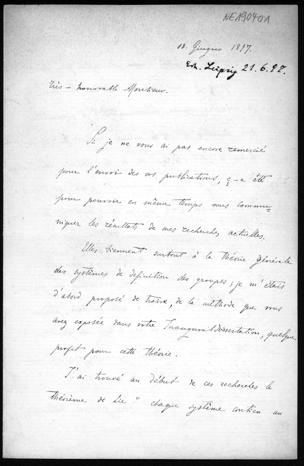 NEA9040A
18. Giugno 1897.
Erh. Leipzig 21.6.97.
Très-honorable Monsieur.
Si je ne vous ai pas encore remercié
pour l'envoi des vos publications, ç-a été
pour pouvoir en même temps vous commu-
niquer les résultats de mes recherches actuelles.
Elles tiennent surtout à la théorie générale
des systèmes de définition des groupes; je m'étais
d'abord proposé de traire, de la méthode que vous
avez exposée dans votre Inaugural-dissertation, quelque
profit pour cette théorie.
J'ai trouvé au début de ces recherches le
théorème de Lie "chaque système contien au